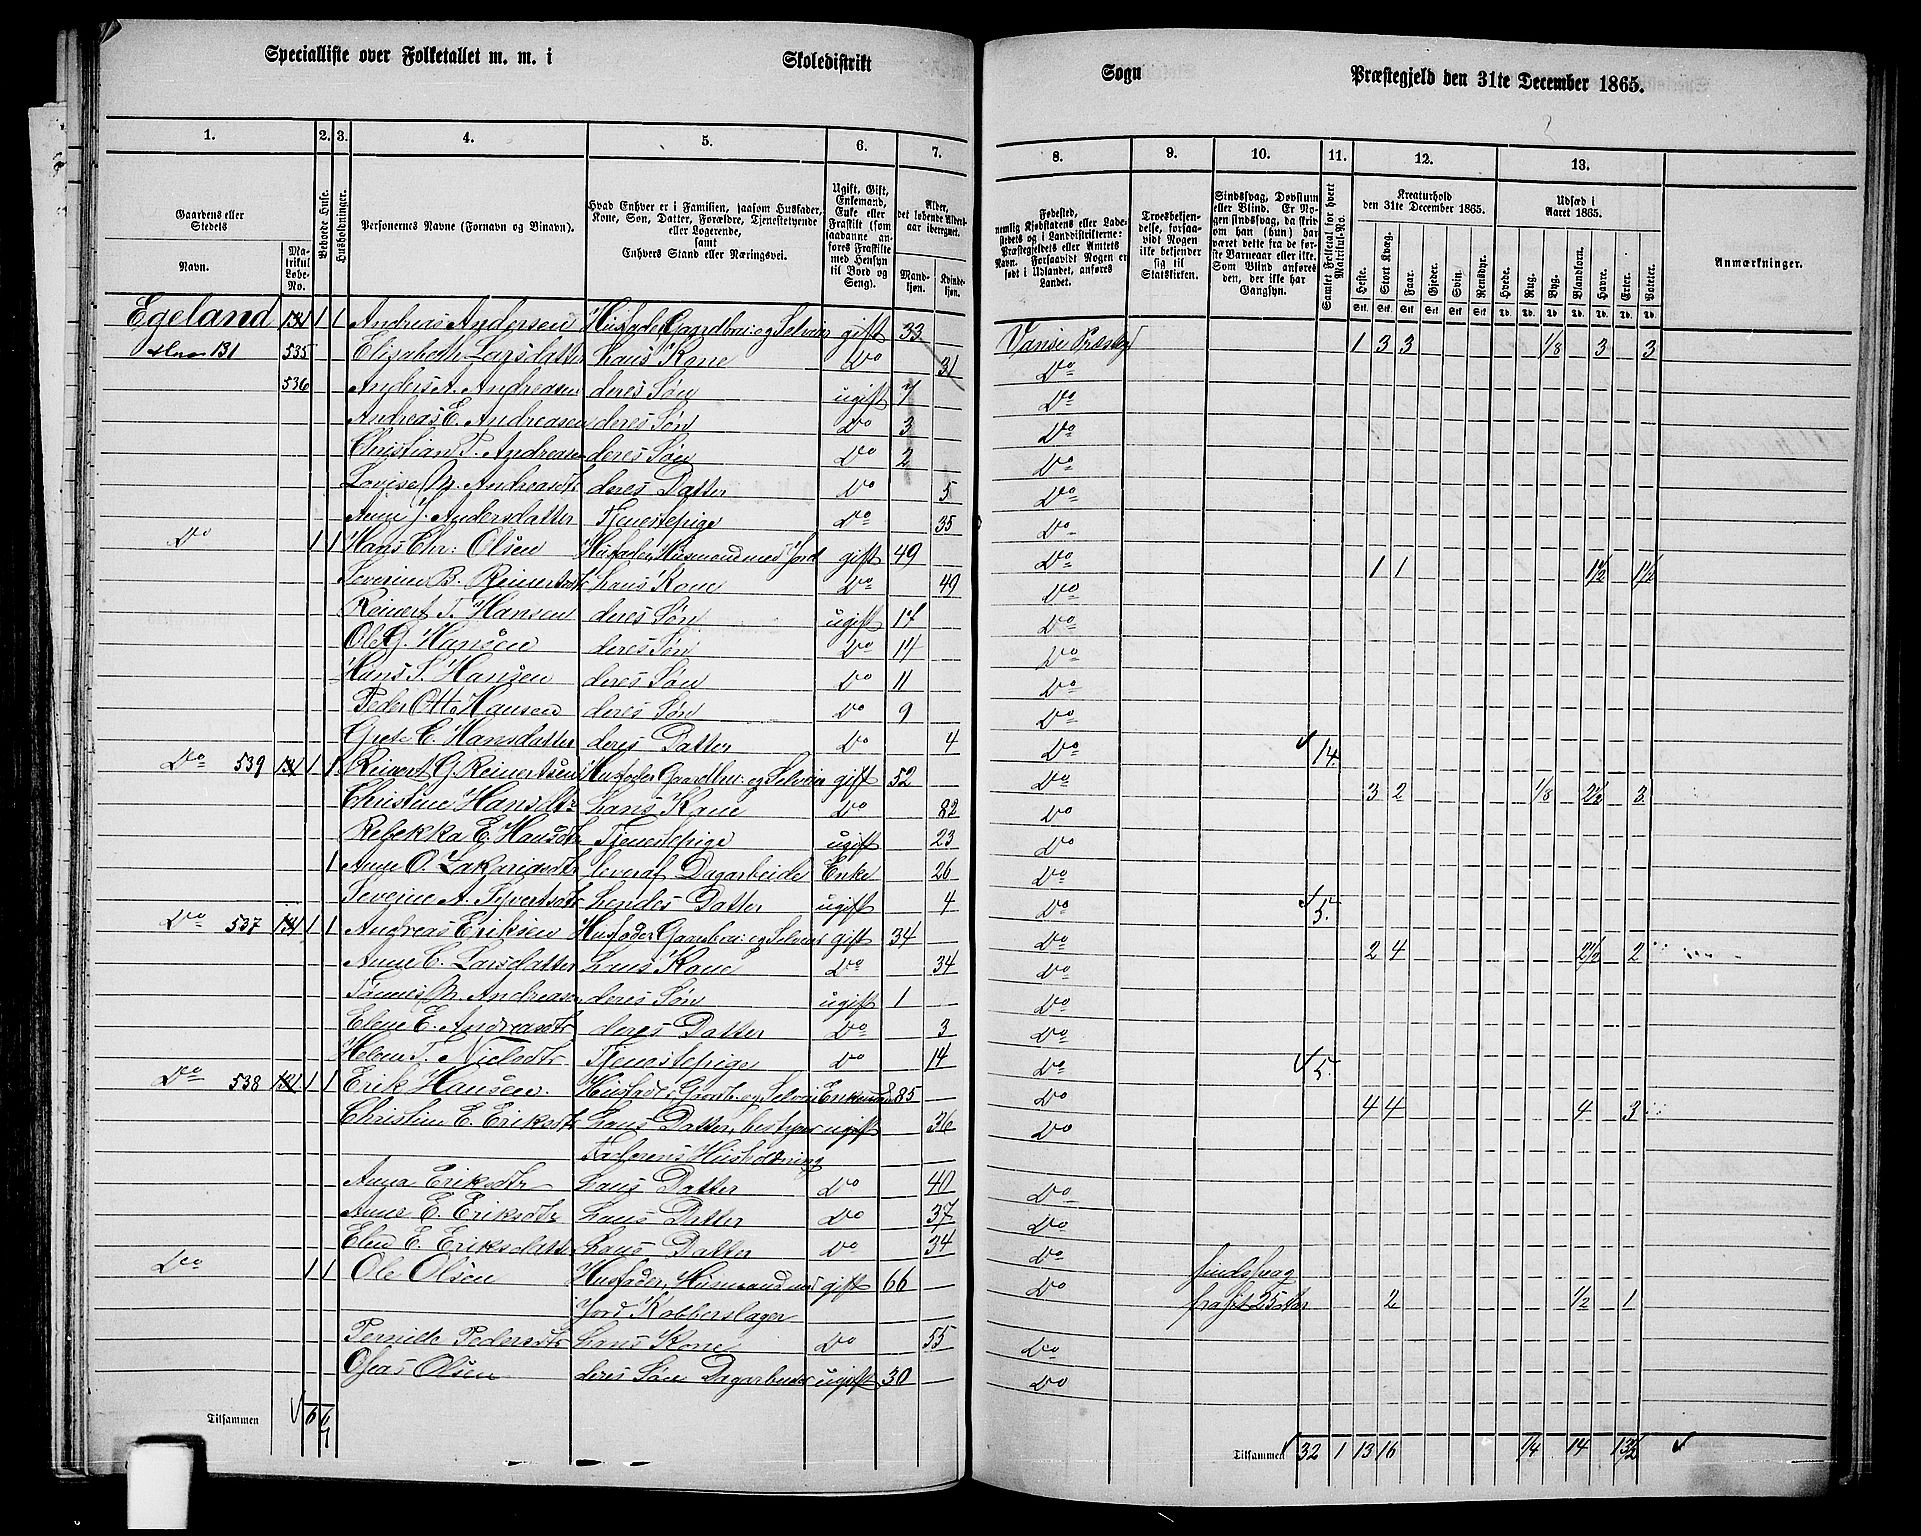 Specialliste over Folketallet m. m. i Skoledistrikt Sogn Præstegjeld den 31te December 1865.
1. 2. 3. 4. 5. 6. 7. 8. 9. 10. 11. 12. 13.
Gaardens eller Stedets
Navn.
Matrikul Løbe-No.
Beboede Huse.
Husholdninger.
Personernes Navne (Fornavn og Binavn).
Hvad Enhver er i Familien, saasom Husfader, Kone, Søn, Datter, Forældre, Tjenestetyende eller Logerende, samt Enhvers Stand eller Næringsvei.
Ugift, Gift, Enkemand, Enke eller Fraskilt (som saadanne anføres Fraskilte med Hensyn til Bord og Seng).
Alder, det løbende Aldersaar iberegnet.
Mandkjøn.
Kvindekjøn.
Fødested, nemlig Kjøbstadens eller Ladestedets og i Landdistrikterne: Præstegjeldets eller Amtets Navn. Forsaavidt Nogen er født i Udlandet, anføres Landet.
Troesbekjendelse, forsaavidt Nogen ikke bekjender sig til Statskirken.
Sindssvag, Døvstum eller Blind. Er Nogen sindssvag, da skrives om han (hun) har været dette fra de første Barneaar eller ikke. Som Blind anføres den, der ikke har Gangsyn.
Samlet Folketal for hvert Matrikul-No.
Kreaturhold den 31te December 1865.
Heste. Stort Kvæg. Faar. Gjeder. Svin. Rensdyr.
Udsæd i Aaret 1865.
Hvede. Rug. Byg. Blandkorn. Havre. Erter. Poteter.
Anmærkninger.
Egeland 131 1 1 Andreas Andersen Husfader Gaardbru: og Selveier gift 33 Vanse Præsteg 1 3 3 1/8 3 3
131 535 Elisabeth Larsdatter hans Kone Do 31 Do
536 Anders A. Andreasen deres Søn ugift 7 Do
Andreas E. Andreasen deres Søn Do 3 Do
Christian T. Andreasen deres Søn Do 2 Do
Lovise M. Andreasdtr deres Datter Do 5 Do
Anne J. Andersdatter Tjenestepige Do 35 Do
Do 1 1 Hans Chr: Olsen Husfader, Husmand med Jord gift 49 Do 1 1 1½ 1½
Severine B. Reinertsdtr hans Kone Do 49 Do
Reinert T. Hansen deres Søn ugift 17 Do
Ole G. Hansen deres Søn Do 14 Do
Hans S. Hansen deres Søn Do 11 Do
Peder Otto Hansen deres Søn Do 9 Do
Grete C. Hansdatter deres Datter Do 4 Do 14.
Do 539 131 1 1 Reinert G. Reinertsen Husfader Gaardbru: og Selveier gift 52 Do 3 2 1/8 2½ 3
Christine Hansdtr hans Kone Do 82 Do
Rebekka E. Hansdtr Tjenestepige ugift 23 Do
1 Anne O. Zakariasdtr lever af Dagarbeide Enke 26 Do
Severine A. Syvertsdtr hendes Datter ugift 4 Do 5.
Do 537 131 1 1 Andreas Eriksen Husfader Gaardbru: og Selveier gift 34 Do 2 4 2½ 2
Anne C. Larsdatter hans Kone Do 34 Do
Tønnes M. Andreasen deres Søn ugift 1 Do
Elene E. Andreasdtr deres Datter Do 3 Do
Helene T. Nielsdtr Tjenestepige Do 14 Do 5
Do 538 131 1 1 Erik Hansen Husfader Gaardb. og Selveier Enkemand 85 Do 4 4 4 3
Christine E. Eriksdtr hans Datter, bestyrer ugift 36 Do
Faderens Husholdning
Anna Eriksdtr hans Datter Do 40 Do
Anne E. Eriksdtr hans Datter Do 37 Do
Elen E. Eriksdatter hans Datter Do 34 Do
Do 1 1 Ole Olsen Husfader, Husmand med gift 66 Do sindssvag
Jord Kobberslager fra sit 25 Aar 2 ½ 1
Pernile Pedersdtr hans Kone Do 55 Do
Ole Olsen deres Søn Dagarbeider ugift 30 Do
Tilsammen 6 6 7
Tilsammen 32 1 13 16 ¼ 14 13½